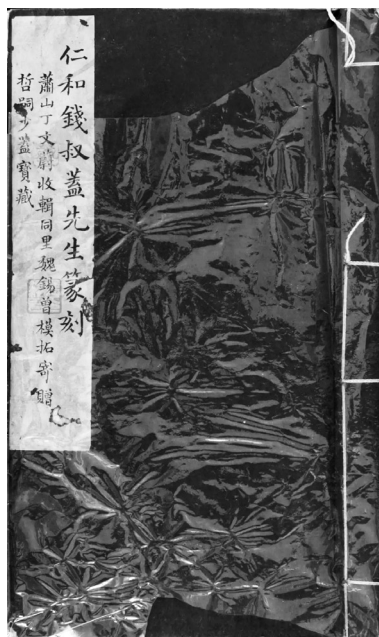 仁和錢叔蓋先生篆刻
蕭山丁文蔚收輯同里魏錫曾模拓寄贈
哲嗣少蓋寶藏